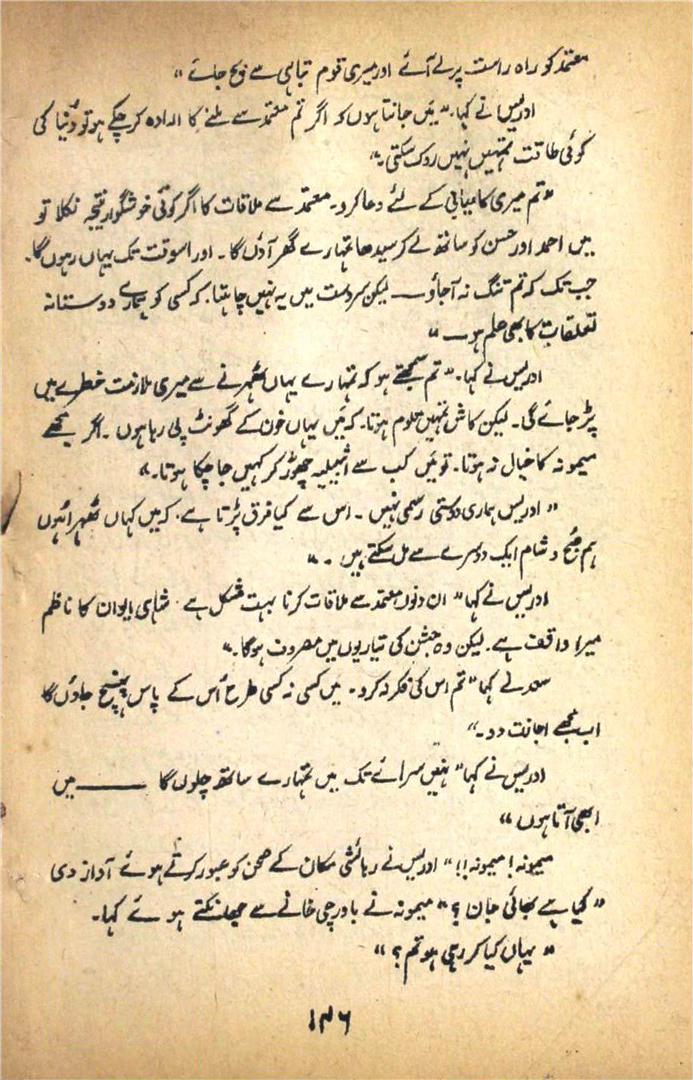 معتمد کو راہ راست پر لے آئے اور میری قوم تباہی سے بچ جائے"
ادریس نے کہا۔ "میَں جانتا ہوں کہ اگر تم معتمد سے ملنے کا ارادہ کر چکے ہو تو دُنیا کی
کوئی طاقت تمہیں نہیں روک سکتی۔"
"تم میری کامیابی کے لئے دعا کرو۔ معتمد سے ملاقات کا اگر کوئی خوشگوار نتیجہ نکلا تو
میں احمد اور حسن کو ساتھ لے کر سیدھا تمہارے گھر آؤں گا۔ اور اسوقت تک یہاں رہوں گا۔
جب تک کہ تم تنگ نہ آجاؤ — لیکن سردست میں یہ نہیں چاہتا۔ کہ کسی کو ہمارے دوستانہ
تعلقات کا بھی علم ہو — "
ادریس نے کہا۔ "تم سمجھتے ہو کہ تمہارے یہاں ٹھہرنے سے میری ملازمت خطرے میں
پڑ جائے گی۔ لیکن کاش تمہیں معلوم ہوتا۔ کہ میَں یہاں خون کے گھونٹ پی رہا ہوں ۔ اگر مجھے
میمونہ کا خیال نہ ہوتا۔ تو میَں کب سے اشبیلیہ چھوڑ کر کہیں جا چکا ہوتا۔"
"ادریس ہماری دوستی رسمی نہیں ۔ اس سے کیا فرق پڑتا ہے۔ کہ میں کہاں ٹھہرا ہوں
ہم صبح و شام ایک دوسرے سے مل سکتے ہیں ۔ "
ادریس نے کہا" ان دنوں معتمد سے ملاقات کرنا بہت مشکل ہے ۔ شاہی ایوان کا ناظم
میرا واقف ہے۔ لیکن وہ جشن کی تیاریوں میں مصروف ہوگا۔"
سعد نے کہا" تم اس کی فکر نہ کرو۔ میں کسی نہ کسی طرح اُس کے پاس پہنچ جاؤں گا
اب مجھے اجازت دو۔"
ادریس نے کہا" نہیں سرائے تک میں تمہارے ساتھ چلوں گا ——— میں
ابھی آتا ہوں "
میمونہ! میمونہ!!" ادریس نے رہائشی مکان کے صحن کو عبور کرتے ہوئے آواز دی
"کیا ہے بھائی جان ؟" میمونہ نے باورچی خانے سے جھانکتے ہوئے کہا۔
" یہاں کیا کر رہی ہو تم ؟ "
۱۴۶